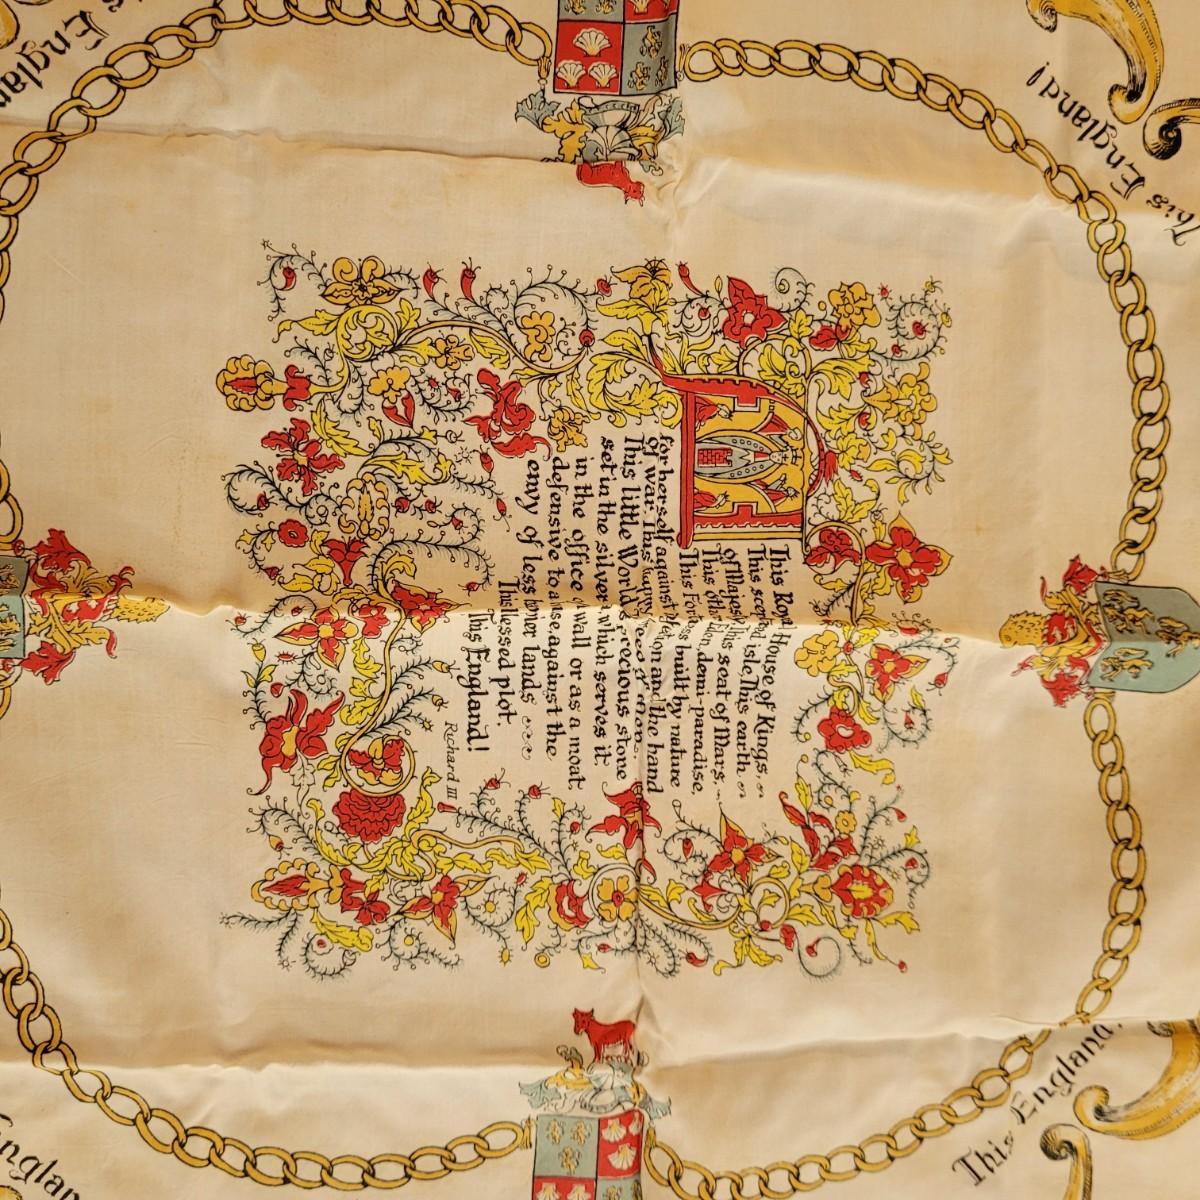 This Royal House of Kings,
This scepter'd isle, This earth
of Majesty, This seat of Mars,
This other Eden, demi-paradise,
This Fortress built by nature
for herself against infection and the hand
of war. This happy breed of men,
This little World, precious stone
set in the silver which serves it
in the office wall or as a moat
defensive to a house against the
envy of less happier lands
This blessed plot,
This England!
Richard III
This England!
This England!
England
England